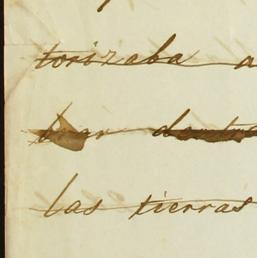 torizaba a
dentro
las tierras